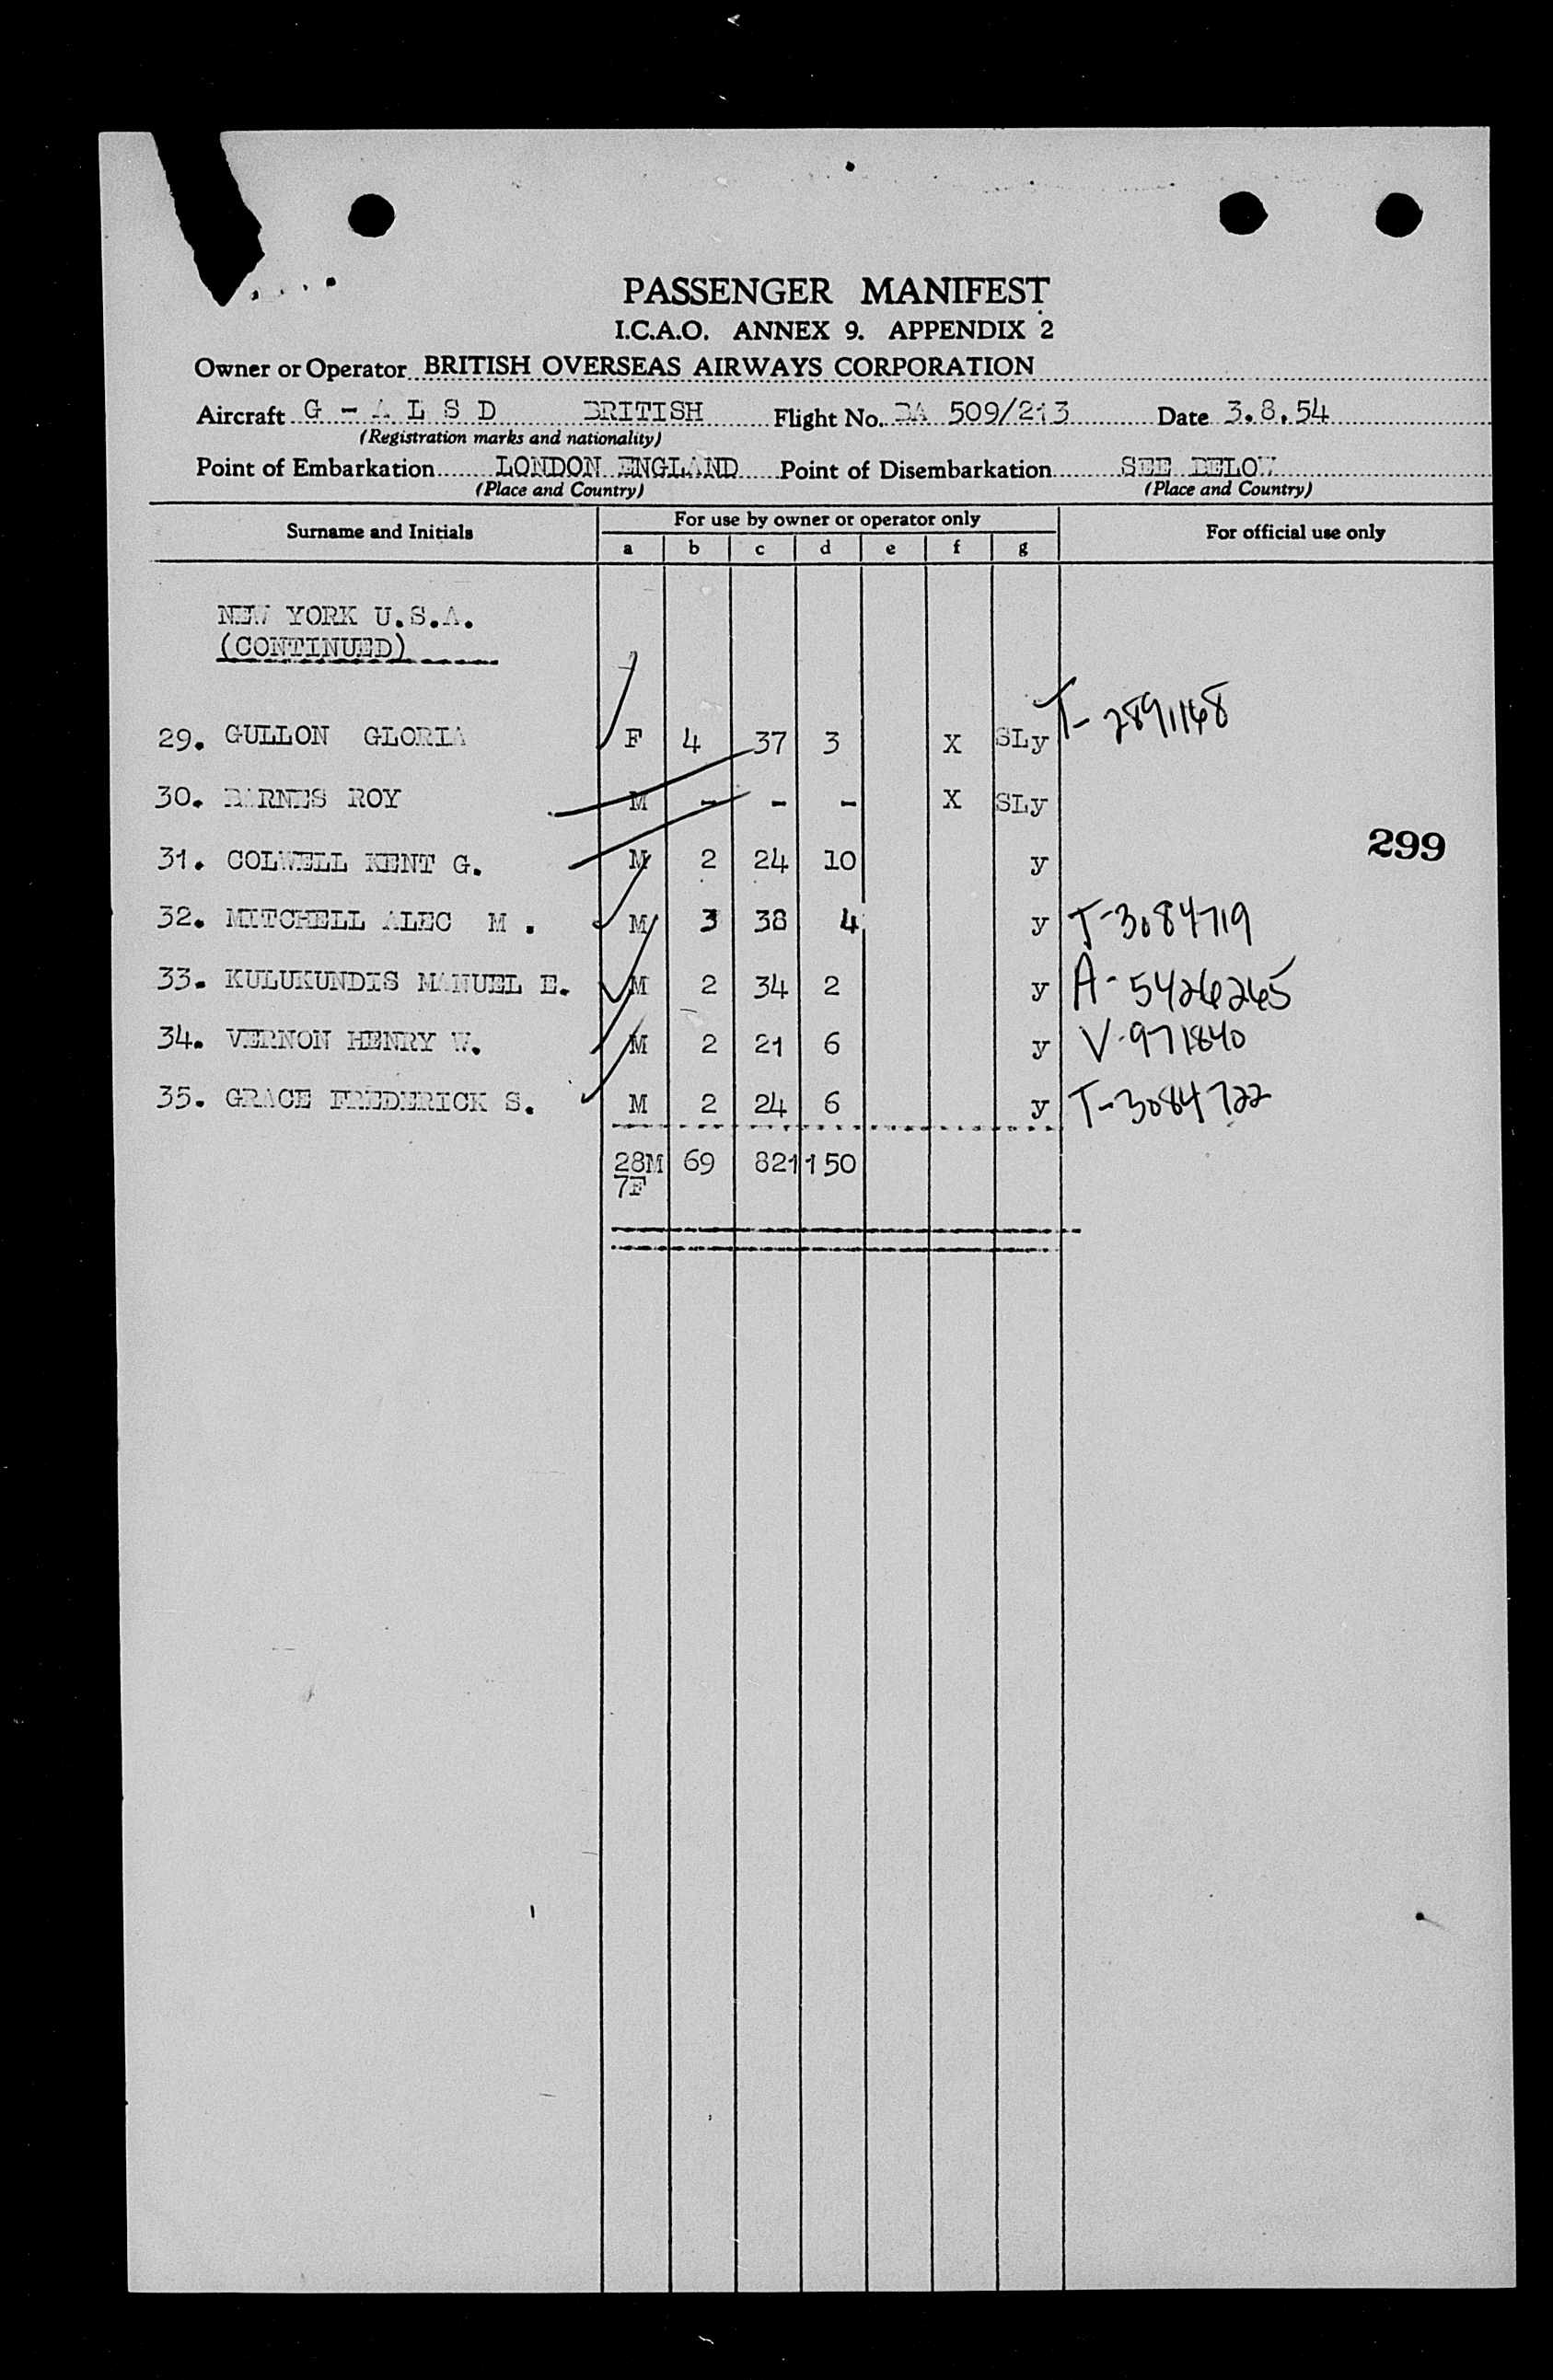 PASSENGER MANIFEST
I.C.A.O. ANNEX 9. APPENDIX 2
Owner or Operator BRITISH OVERSEAS AIRWAYS CORPORATION
Aircraft G - A L S D BRITISH Flight No. BA 509/213 Date 3.8.54
(Registration marks and nationality)
Point of Embarkation LONDON ENGLAND Point of Disembarkation SEE BELOW
(Place and Country) (Place and Country)
Surname and Initials For use by owner or operator only For official use only
a b c d e f g
NEW YORK U.S.A.
(CONTINUED)
29. GULLON GLORIA F 4 37 3 X SLy T-2891148
30. BARNES ROY M - - - X SLy
299
31. COLWELL KENT G. M 2 24 10 y
32. MITCHELL ALEC M . M 3 38 4 y T-3084719
33. KULUKUNDIS MANUEL E. M 2 34 2 y A-5426265
34. VERNON HENRY W. M 2 21 6 y V-971840
35. GRACE FREDERICK S. M 2 24 6 y T-3084722
28M 69 821 150
7F